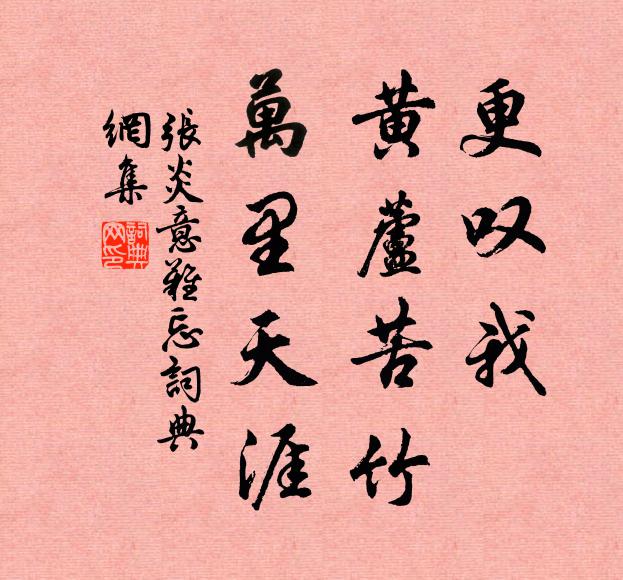 更叹我
黄蘆苦竹
萬里天涯
張炎意難忘詞典
網集
詞典
网印